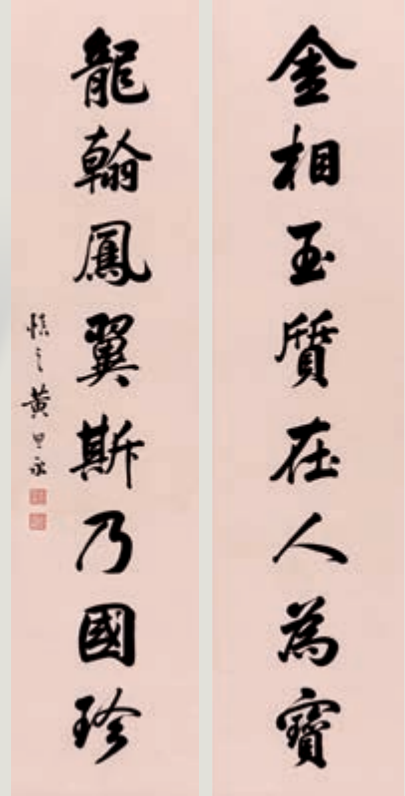 金相玉質在人為寶
龍翰鳳翼斯乃國珍
慎之黃思永